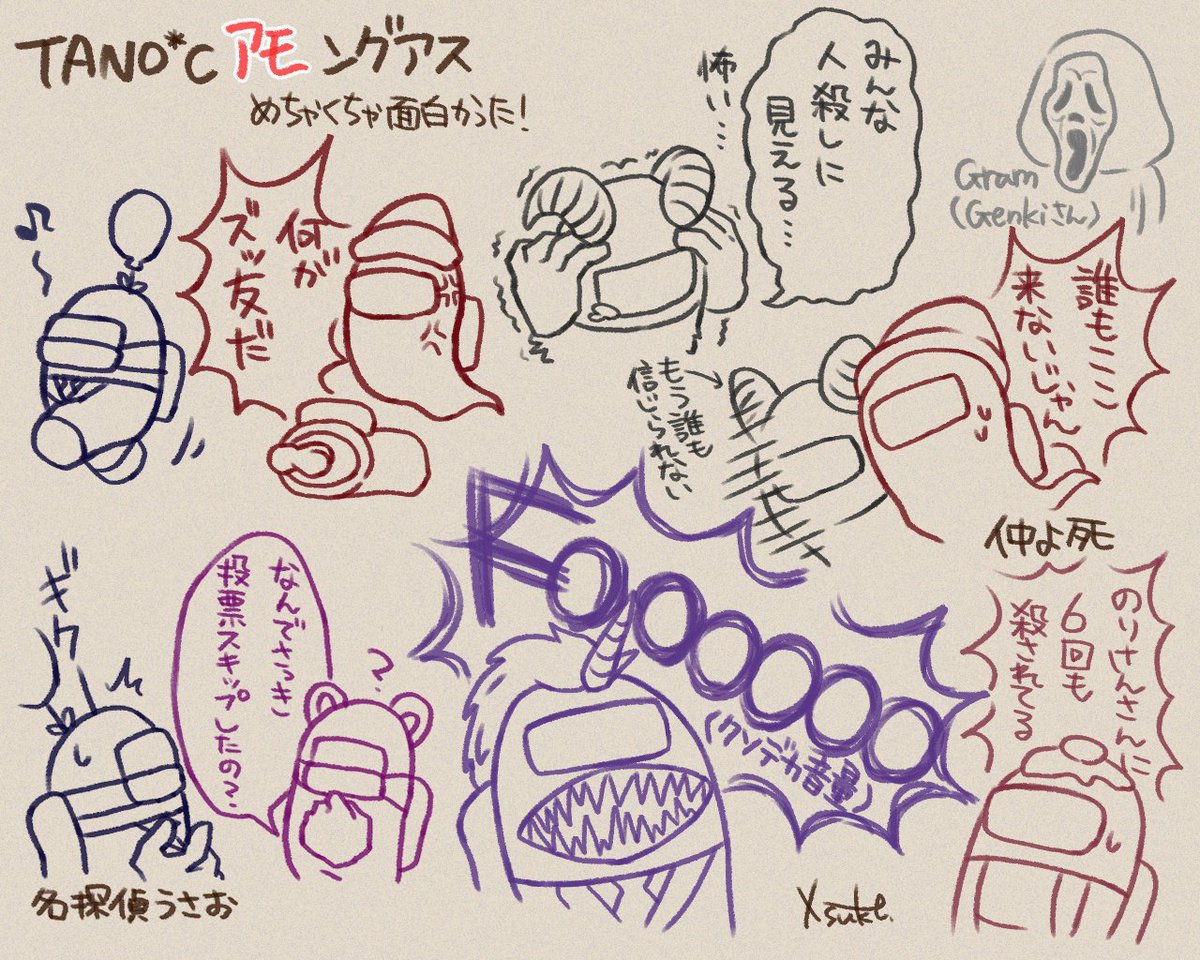 TANO*C アモングアス
めちゃくちゃ面白かった!
みんな
人殺しに
見える…
怖い…
Gram
(Genkiさん)
♪〜
何が
ズッ友だ
誰もここ
来ないじゃん
もう誰も
信じられない
仲よ死
ギクッ
なんでさっき
投票スキップしたの?
?
FOOOOOO
(クソデカ音量)
のりけんさんに
6回も
殺されてる
名探偵うさお
Xsuke.